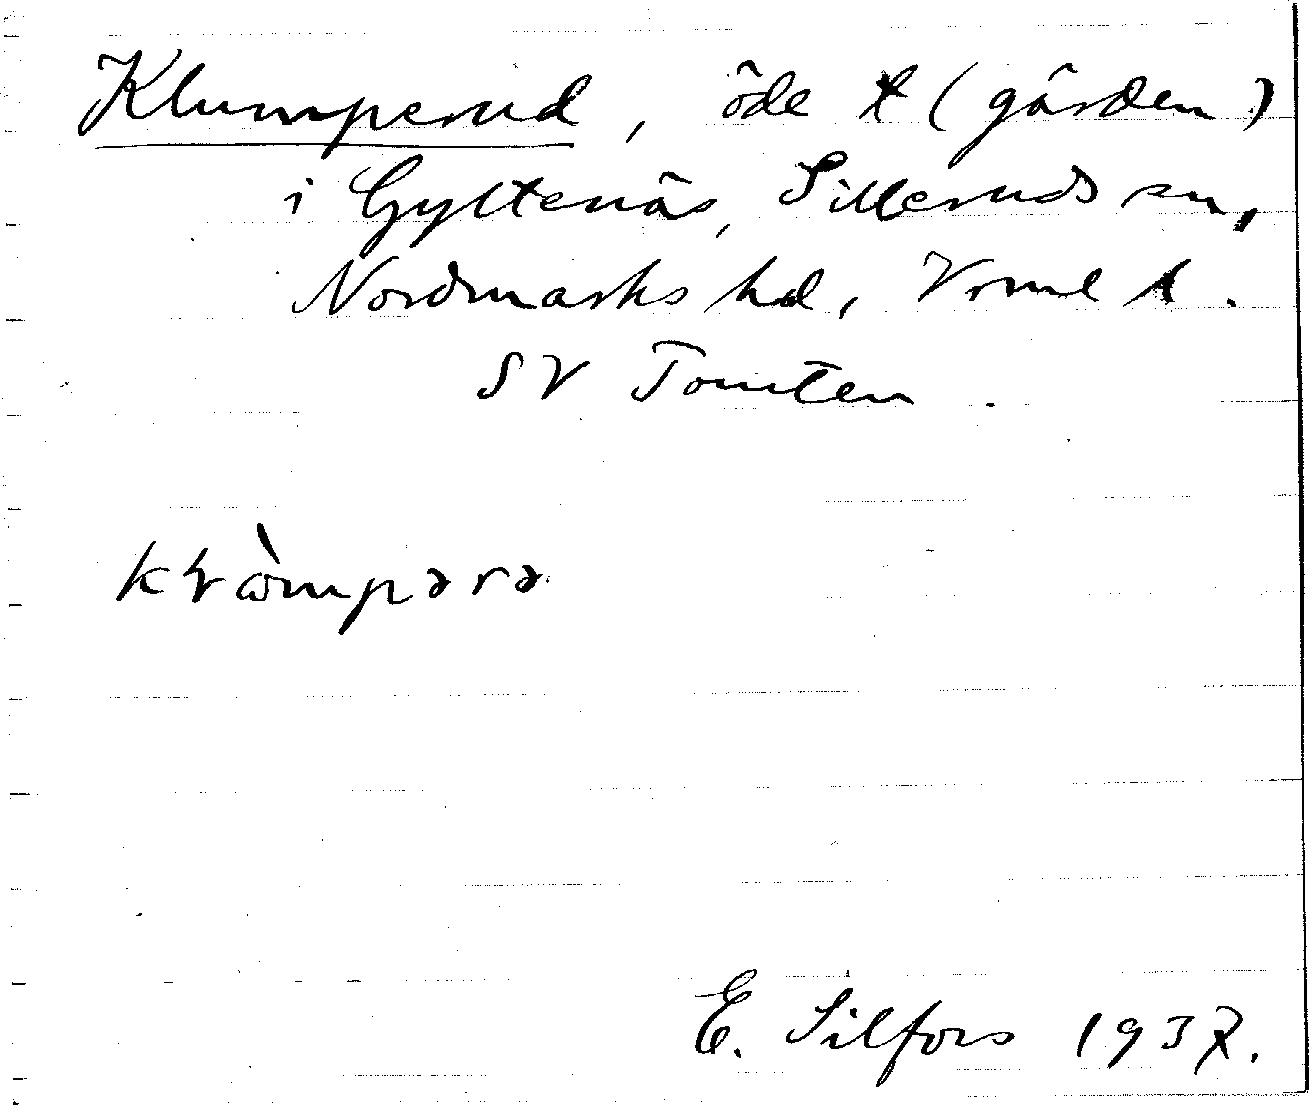 Klumperud, öde t (gården)
i Gyltenäs, Silleruds sn,
Nordmarks hd, Vrml l.
SV Tomten.
kɽɷ̀mpərə
E. Silfors 1937.